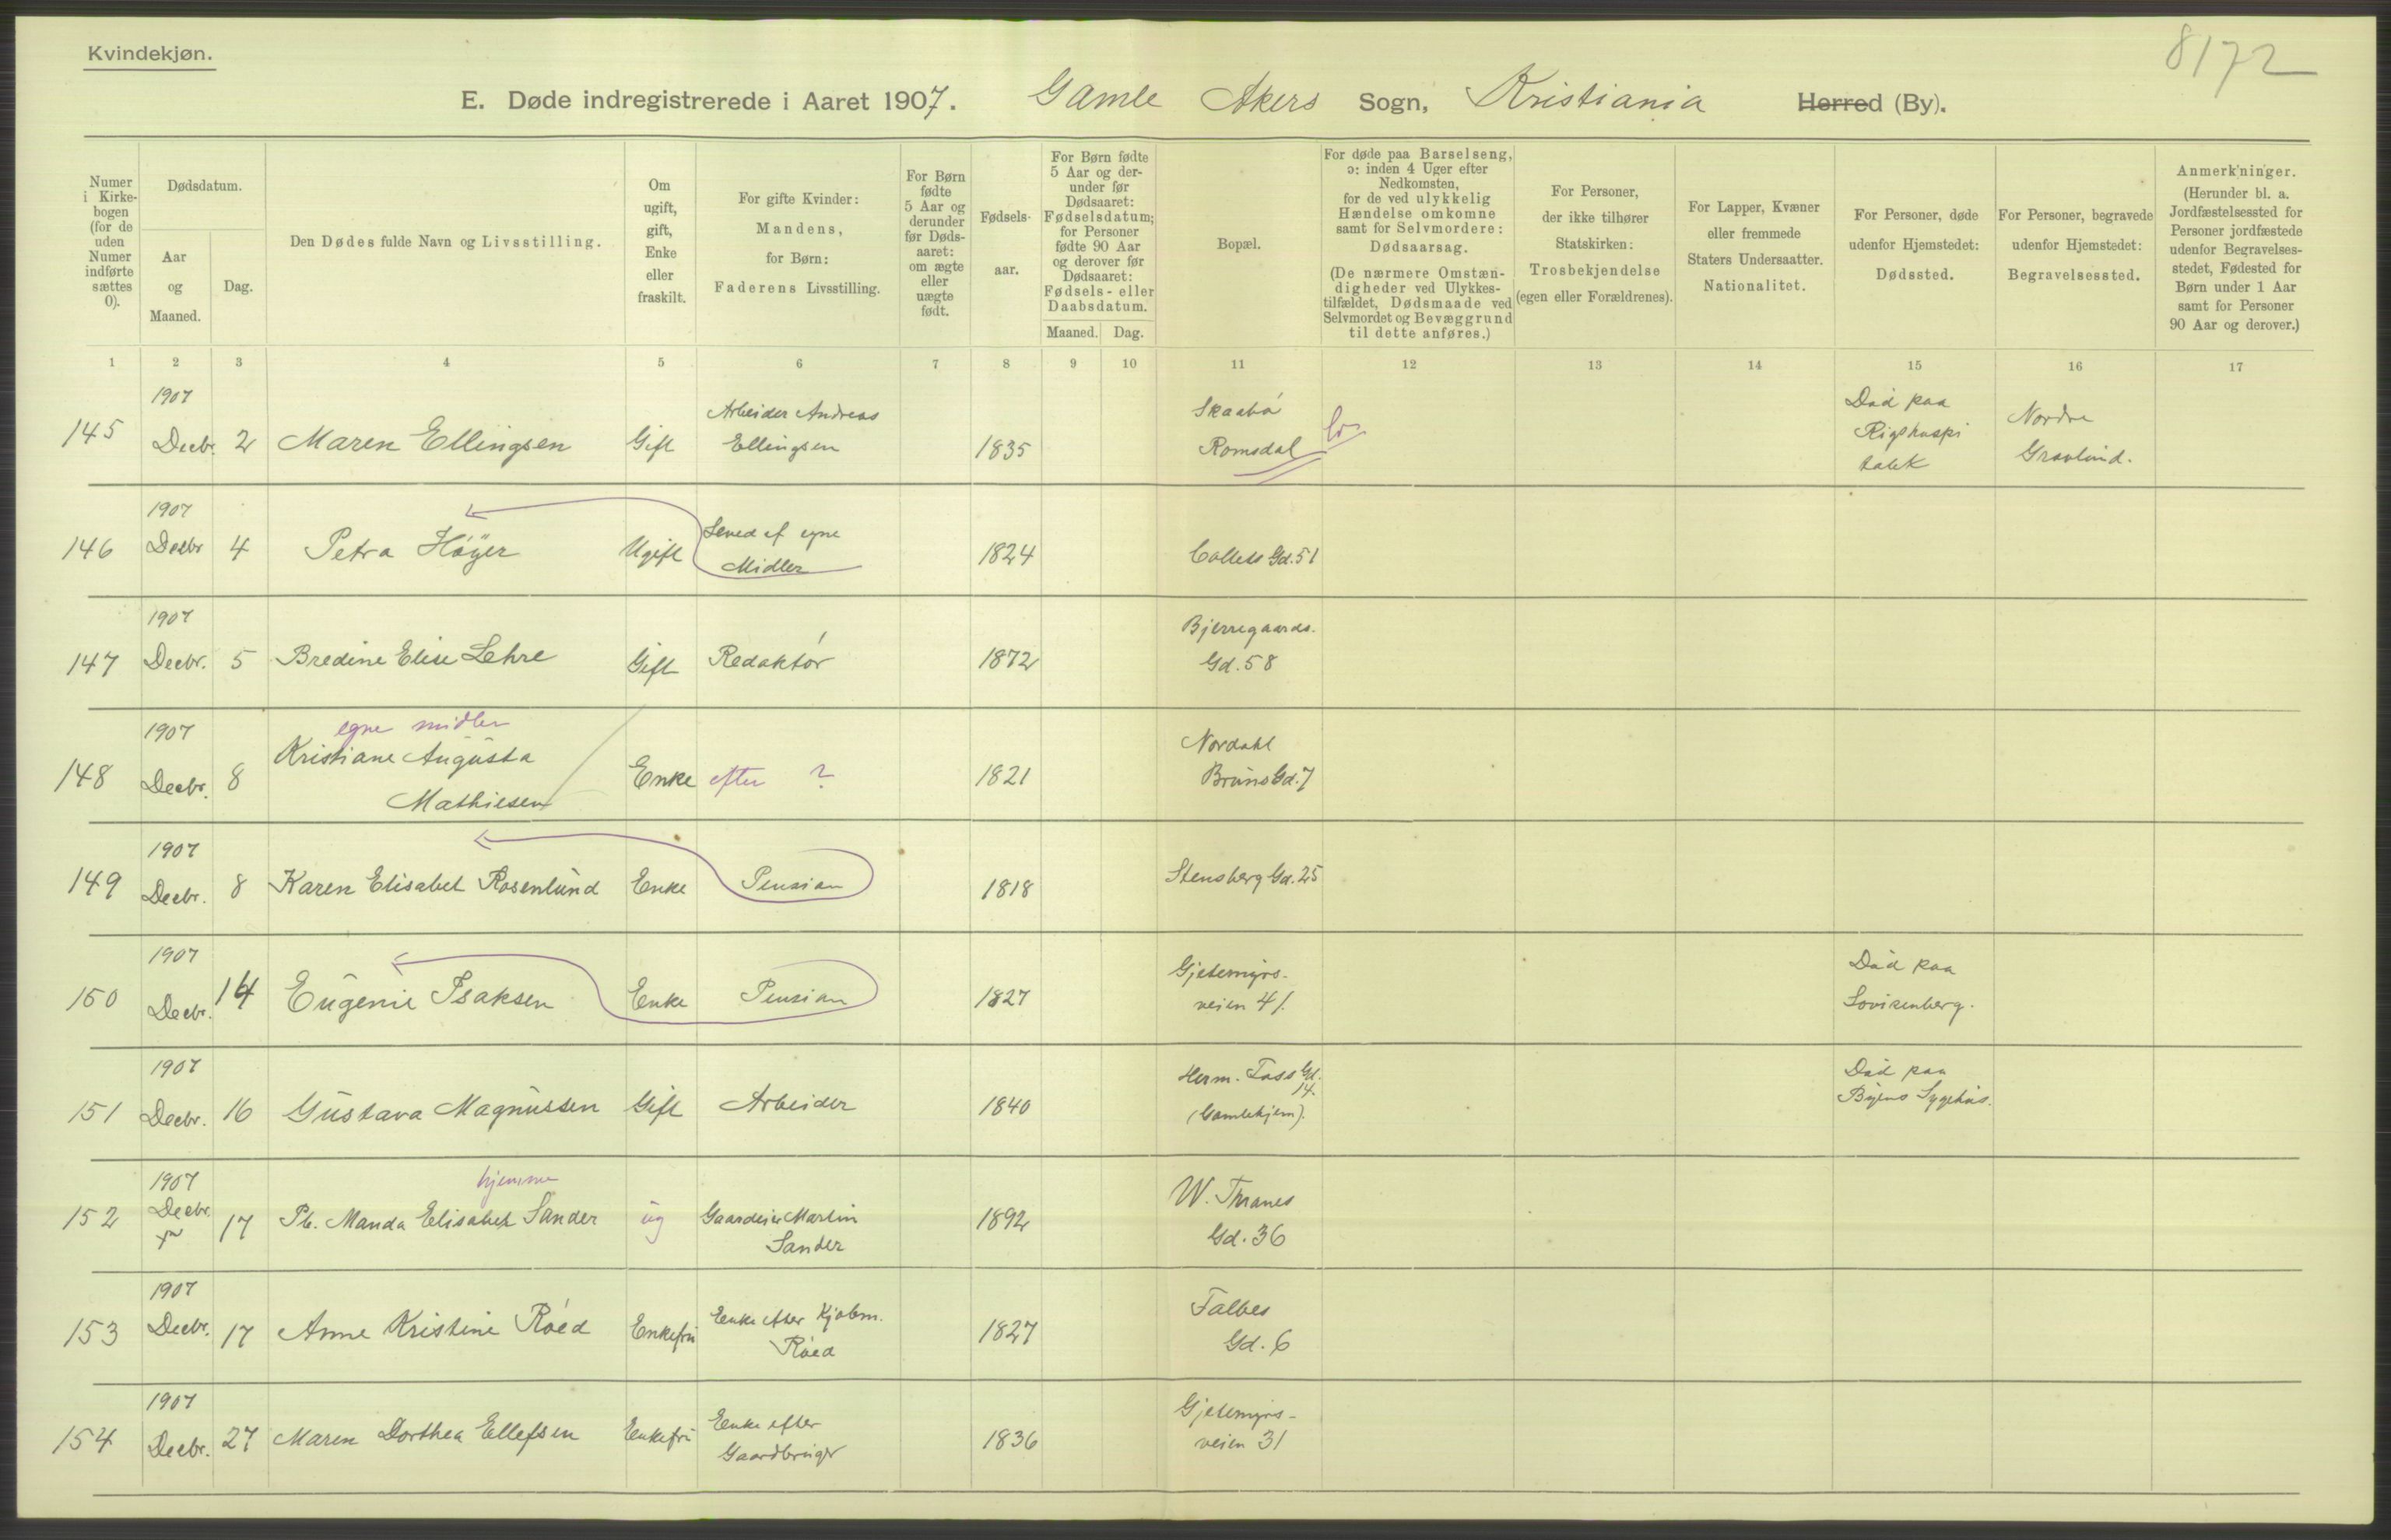 Kvindekjøn.
8172
E. Døde indregistrerede i Aaret 1907. Gamle Akers Sogn, Kristiania Herred (By).
Numer i Kirkebogen (for de uden Numer indførte sættes 0).
Dødsdatum.
Aar og Maaned.
Dag.
Den Dødes fulde Navn og Livsstilling.
Om ugift, gift, Enke eller fraskilt.
For gifte Kvinder: Mandens, for Børn: Faderens Livsstilling.
For Børn fødte 5 Aar og derunder før Dødsaaret: om ægte eller uægte født.
Fødselsaar.
For Børn fødte 5 Aar og derunder før Dødsaaret: Fødselsdatum; for Personer fødte 90 Aar og derover før Dødsaaret: Fødsels- eller Daabsdatum.
Maaned. Dag.
Bopæl.
For døde paa Barselseng, ɔ: inden 4 Uger efter Nedkomsten, for de ved ulykkelig Hændelse omkomne samt for Selvmordere: Dødsaarsag.
(De nærmere Omstændigheder ved Ulykkestilfældet, Dødsmaade ved Selvmordet og Bevæggrund til dette anføres.)
For Personer, der ikke tilhører Statskirken: Trosbekjendelse (egen eller Forældrenes).
For Lapper, Kvæner eller fremmede Staters Undersaatter. Nationalitet.
For Personer, døde udenfor Hjemstedet: Dødssted.
For Personer, begravede udenfor Hjemstedet: Begravelsessted.
Anmerkninger.
(Herunder bl. a. Jordfæstelsessted for Personer jordfæstede udenfor Begravelsesstedet, Fødested for Børn under 1 Aar samt for Personer 90 Aar og derover.)
1 2 3 4 5 6 7 8 9 10 11 12 13 14 15 16 17
145 1907 Decbr. 2 Maren Ellingsen Gift Arbeider Andreas Ellingsen 1835 Skaabø Romsdal Død paa Rigshospitalet Nordre Gravlund.
146 1907 Decbr 4 Petra Høyer Ugift Leved af egne Midler 1824 Collets Gd. 51
147 1907 Decbr. 5 Bredine Elise Lehre Gift Redaktør 1872 Bjerregaards. Gd. 58
148 1907 Decbr. 8 egne midler Kristiane Augusta Mathiesen Enke efter ? 1821 Nordahl Bruns Gd. 7
149 1907 Decbr. 8 Karen Elisabet Rosenlund Enke Pension 1818 Stensberg Gd. 25
150 1907 Decbr. 14 Eugenie Isaksen Enke Pension 1827 Gjetemyrsveien 41. Død paa Lovisenberg.
151 1907 Decbr. 16 Gustava Magnussen Gift Arbeider 1840 Herm. Foss Gd. 14. (Gamlehjem). Død paa Byens Sygehus.
152 1907 Decbr. 17 hjemme Pb. Manda Elisabet Sander ug Gaardeier Martin Sander 1892 W. Thranes Gd. 36
153 1907 Decbr. 17 Anne Kristine Røed Enkefru Enke efter Kjøbm. Røed 1827 Falbes Gd. 6
154 1907 Decbr. 27 Maren Dorthea Ellefsen Enkefru Enke efter Gaardbruger 1836 Gjetemyrsveien 31